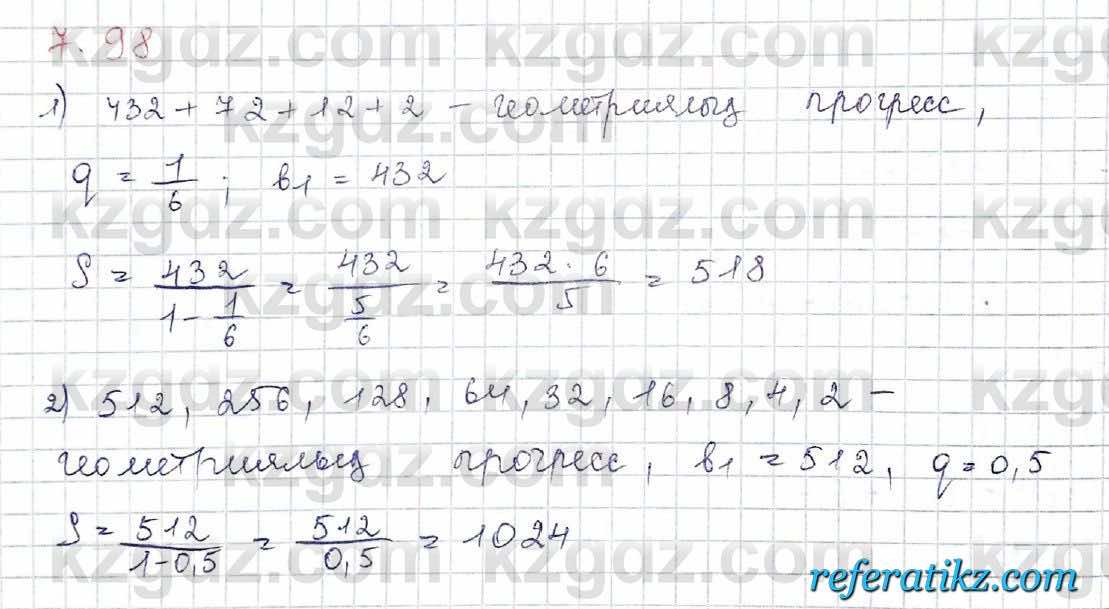 7.98
1) 432 + 72 + 12 + 2 – геометриялық прогресс,
q = 1/6 ; b1 = 432
S = 432/(1 - 1/6) = 432/(5/6) = (432 · 6)/5 = 518
2) 512, 256, 128, 64, 32, 16, 8, 4, 2 –
геометриялық прогресс, b1 = 512, q = 0,5
S = 512/(1-0,5) = 512/0,5 = 1024
kzgdz.com
referatikz.com